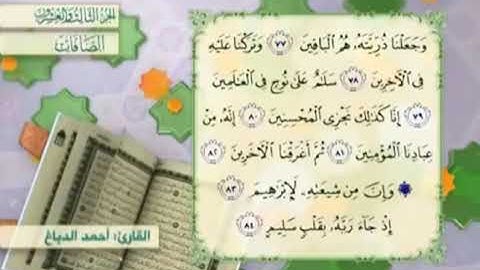 الجزء الثالث والعشرون
الصافات
وَجَعَلْنَا ذُرِّيَّتَهُۥ هُمُ ٱلْبَاقِينَ ٧٧ وَتَرَكْنَا عَلَيْهِ
فِى ٱلْءَاخِرِينَ ٧٨ سَلَٰمٌ عَلَىٰ نُوحٍ فِى ٱلْعَٰلَمِينَ
٧٩ إِنَّا كَذَٰلِكَ نَجْزِى ٱلْمُحْسِنِينَ ٨٠ إِنَّهُۥ مِنْ
عِبَادِنَا ٱلْمُؤْمِنِينَ ٨١ ثُمَّ أَغْرَقْنَا ٱلْءَاخَرِينَ ٨٢
۞ وَإِنَّ مِن شِيعَتِهِۦ لَإِبْرَٰهِيمَ ٨٣
إِذْ جَآءَ رَبَّهُۥ بِقَلْبٍ سَلِيمٍ ٨٤
القارئ: أحمد الدباغ